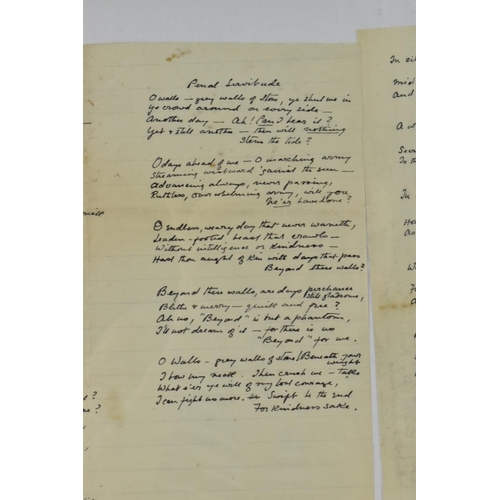 Penal Servitude
O walls – grey walls of stone, ye shut me in
Ye crowd around on every side –
Another day – Ah! Can I bear it?
Yet & still another – then will nothing
Stem the tide?
O days ahead of me – O marching army
Streaming westward 'gainst the sun –
Advancing always, never passing,
Ruthless, overwhelming army, will you
Ne'er have done?
O endless, weary day that never warneth,
Leaden-footed beast that crawls –
Without intelligence or kindness –
Hast thou aught of kin with days that pass
Beyond these walls?
Beyond these walls, are days perchance
still gladsome,
Blithe & merry – quick and free?
Ah no, "Beyond" is but a phantom,
I'll not dream of it – for there is no
"Beyond" for me.
O Walls – grey walls of stone, Beneath your
weight
I bow my neck. Then crush me – take
What e'er ye will of my lost courage,
I can fight no more. Swift be the end
For kindness sake.
In
Mid
And
A w
In
W
A